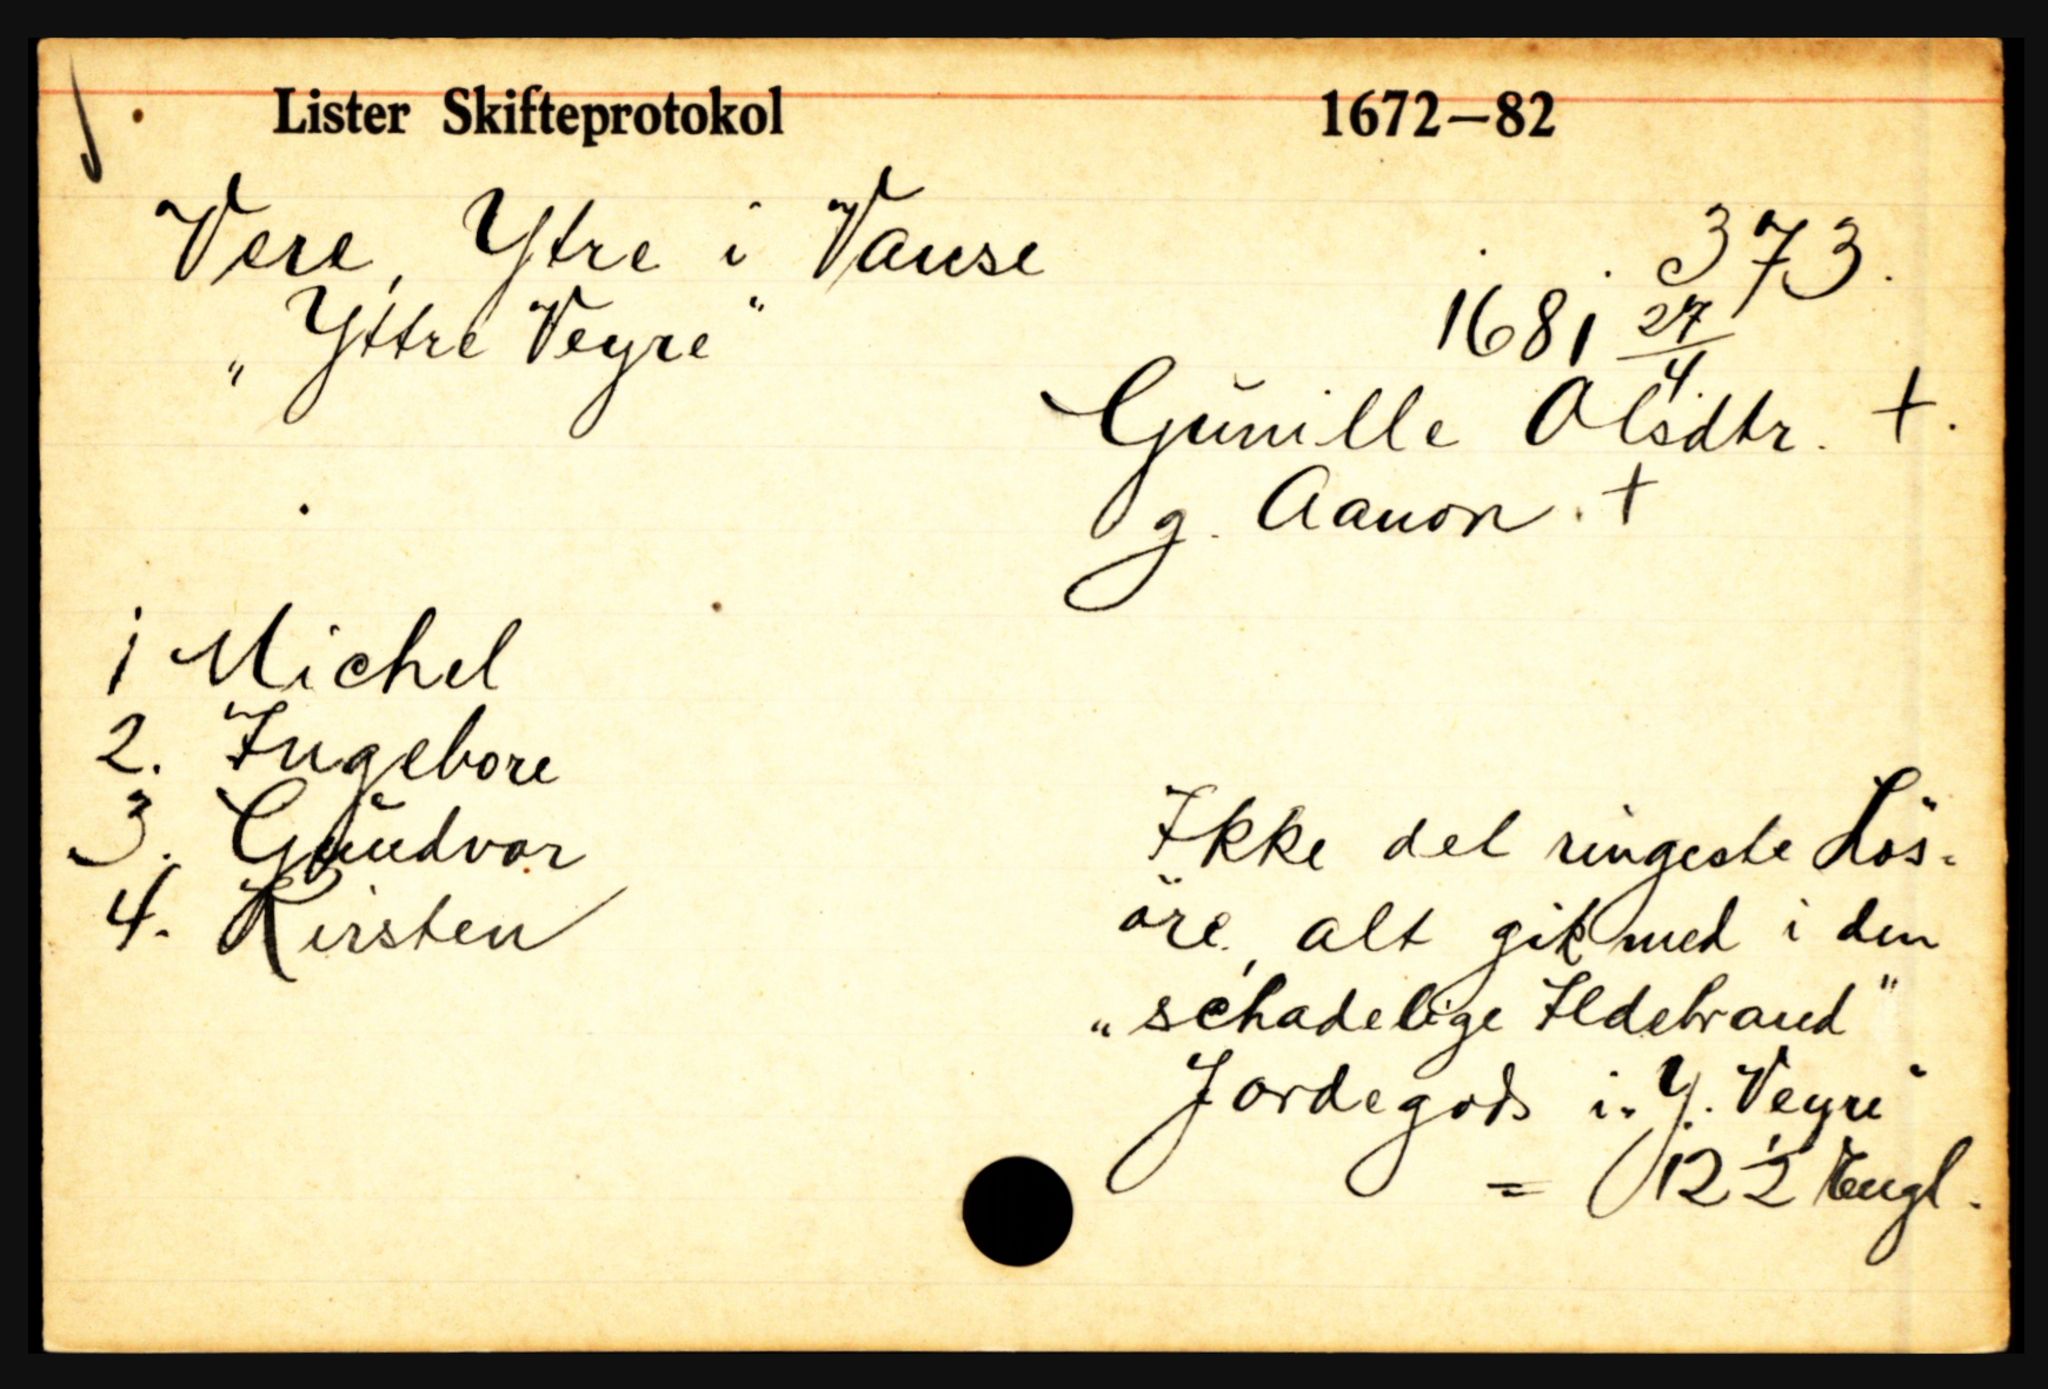 Lister Skifteprotokol 1672–82
Vere, Ytre i Vanse
373.
„Yttre Veyre“
1681 27/4
Gŭnille Olsdtr. +.
g. Aanon. +
1 Michel
2. Ingebore
3. Gŭndvor
4. Kirsten
Ikke det ringeste Lös-
öre, alt gik med i den
„schadelige Ildebrand“
Jordegods i „Y. Veyre“
= 12 1/2 Engl.